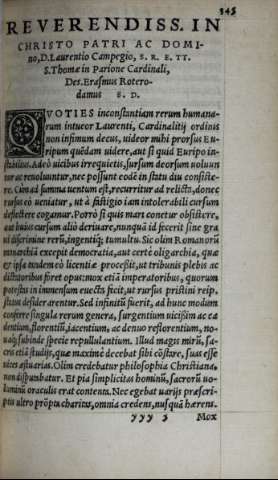 345
REVERENDISS. IN
CHRISTO PATRI AC DOMI-
no, D. Laurentio Campegio, S. R. E. TT.
S. Thomæ in Parione Cardinali,
Des. Erasmus Rotero-
damus S. D.
QVOTIES inconstantiam rerum humana-
rum intueor Laurenti, Cardinalitij ordinis
non infimum decus, uideor mihi prorsus Eu-
ripum quēdam uidere, aut si quid Euripo in-
stabilius. Adeò uicibus irrequietis, sursum deorsum uoluun
tur ac reuoluuntur, nec possunt eodē in statu diu consiste-
re. Cùm ad summa uentum est, recurritur ad relicta, donec
rursus eò ueniatur, ut à fastigio iam intolerabili cursum
deflectere cogamur. Porrò si quis mari conetur obsistere,
aut huius cursum aliò deriuare, nunquā id fecerit sine gra
ui discrimine rerū, ingentiq; tumultu. Sic olim Romanorū
monarchiā excepit democratia, aut certè oligarchia, quæ
et ipsa tandem eò licentiæ processit, ut tribunis plebis ac
dictatoribus foret opus: mox etiā imperatoribus, quorum
potestas in immensum euecta fecit, ut rursus pristini reip.
status desiderarentur. Sed infinitū fuerit, ad hunc modum
conferre singula rerum genera, surgentium uicißim ac ca
dentium, florentiū, iacentium, ac denuo reflorentium, no-
uaq; subinde specie repullulantium. Illud magis mirū, sa-
cris etiā studijs, quæ maximè decebat sibi cōstare, suas esse
uices æstuarias. Olim credebatur philosophia Christiana,
non disputabatur. Et pia simplicitas hominū, sacrorū uo-
luminū oraculis erat contenta. Nec egebat uarijs præscri-
ptis ultro prōpta charitas, omnia credens, nusquā hærens.
yyy 5 Mox